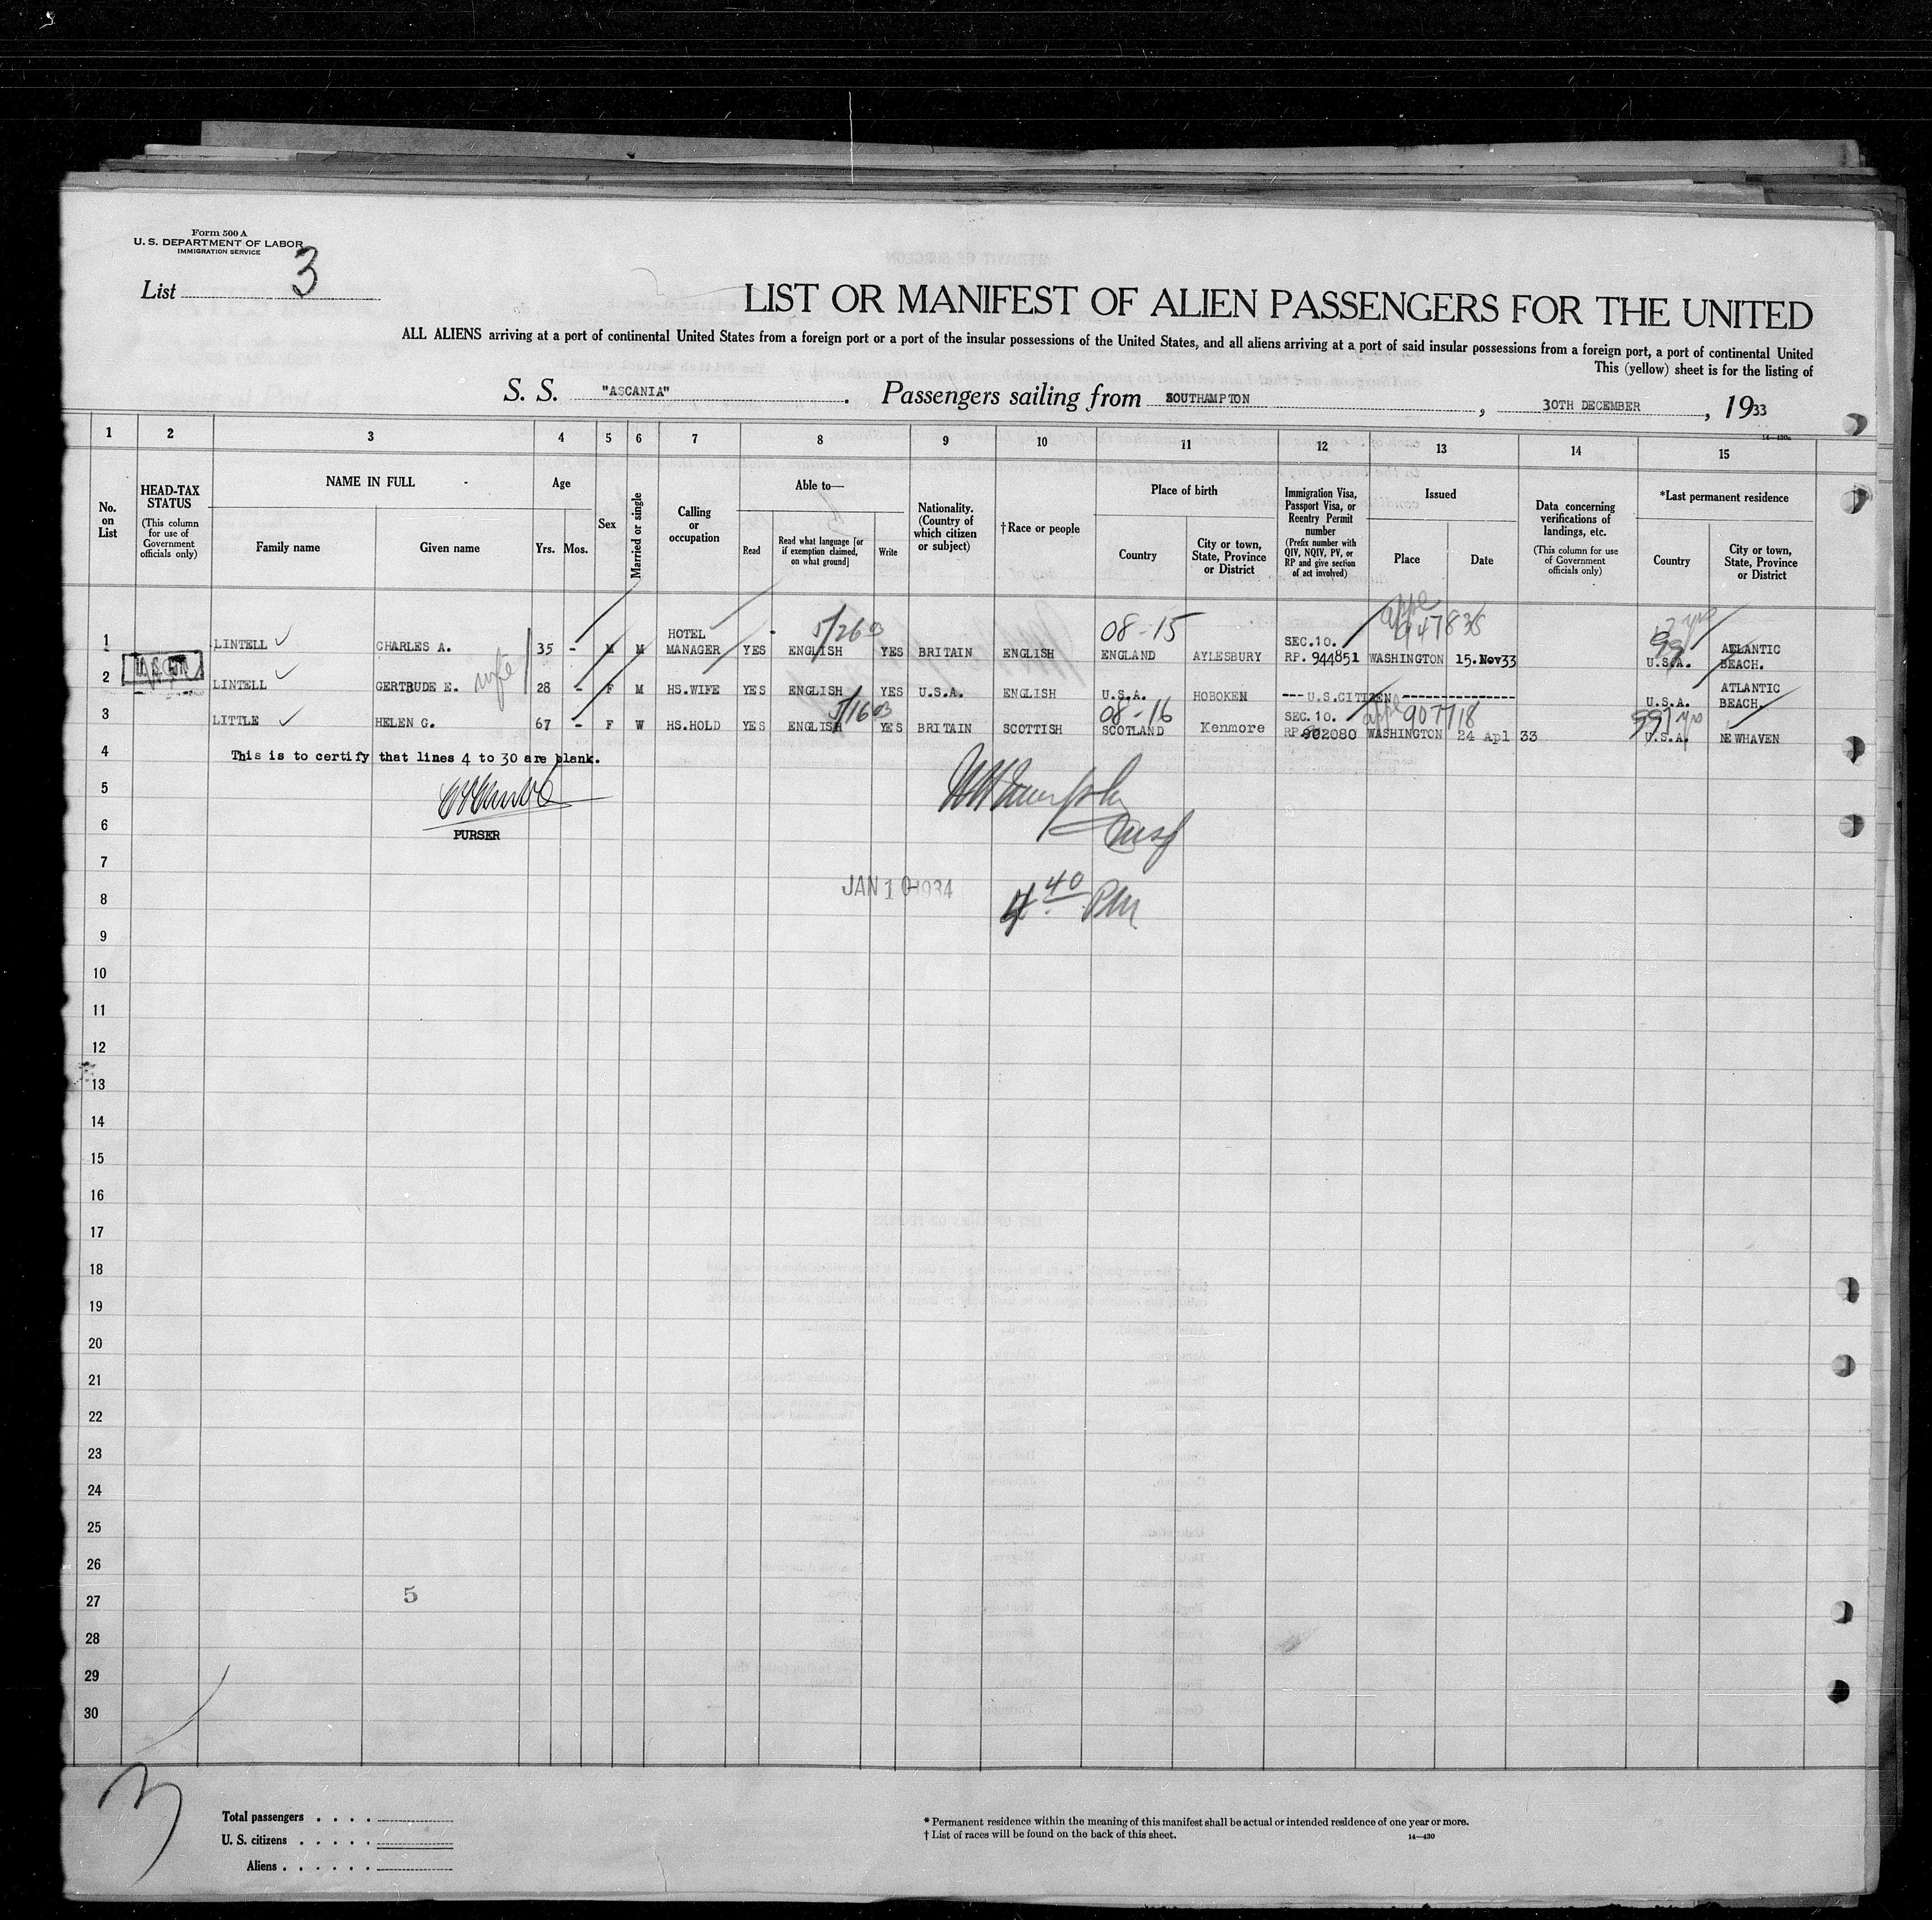 Form 500 A
U. S. DEPARTMENT OF LABOR
IMMIGRATION SERVICE
List 3
LIST OR MANIFEST OF ALIEN PASSENGERS FOR THE UNITED
ALL ALIENS arriving at a port of continental United States from a foreign port or a port of the insular possessions of the United States, and all aliens arriving at a port of said insular possessions from a foreign port, a port of continental United
This (yellow) sheet is for the listing of
S. S. "ASCANIA". Passengers sailing from SOUTHAMPTON, 30TH DECEMBER, 1933
14—430a
1 2 3 4 5 6 7 8 9 10 11 12 13 14 15
No. on List
HEAD-TAX STATUS
(This column for use of Government officials only)
NAME IN FULL
Family name Given name
Age
Yrs. Mos.
Sex
Married or single
Calling or occupation
Able to—
Read
Read what language [or if exemption claimed, on what ground]
Write
Nationality. (Country of which citizen or subject)
†Race or people
Place of birth
Country
City or town, State, Province or District
Immigration Visa, Passport Visa, or Reentry Permit number
(Prefix number with QIV, NQIV, PV, or RP and give section of act involved)
Issued
Place Date
Data concerning verifications of landings, etc.
(This column for use of Government officials only)
*Last permanent residence
Country
City or town, State, Province or District
HOTEL 5/26 08-15 SEC.10. 947838 ATLANTIC
1 LINTELL CHARLES A. 35 - M M MANAGER YES ENGLISH YES BRITAIN ENGLISH ENGLAND AYLESBURY RP. 944851 WASHINGTON 15.Nov33 U.S.A. BEACH.
wife ATLANTIC
2 LINTELL GERTRUDE E. 28 - F M HS.WIFE YES ENGLISH YES U.S.A. ENGLISH U.S.A. HOBOKEN --- U.S.CITIZEN -------------- U.S.A. BEACH.
08-16 SEC.10. 907718
3 LITTLE HELEN G. 67 - F W HS.HOLD YES ENGLISH YES BRITAIN SCOTTISH SCOTLAND Kenmore RP.902080 WASHINGTON 24 Apl 33 U.S.A. NEWHAVEN
4 This is to certify that lines 4 to 30 are blank.
5
6 PURSER
7
JAN 10 1934
8 4 40 PM
9
10
11
12
13
14
15
16
17
18
19
20
21
22
23
24
25
26
5
27
28
29
30
3
Total passengers . . . .
U. S. citizens . . . . .
Aliens . . . . . .
* Permanent residence within the meaning of this manifest shall be actual or intended residence of one year or more.
† List of races will be found on the back of this sheet.
14—430